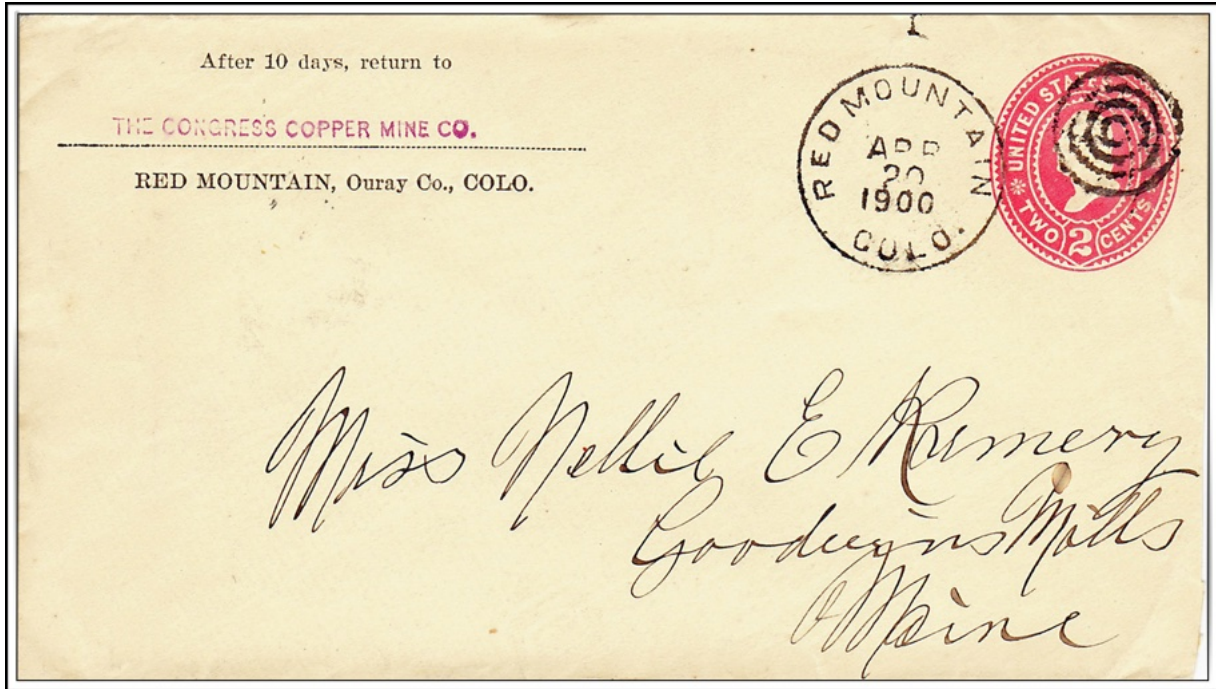 After 10 days, return to
THE CONGRESS COPPER MINE CO.
RED MOUNTAIN, Ouray Co., COLO.
RED MOUNTAIN
APR
20
1900
COLO.
UNITED STATES
TWO 2 CENTS
Miss Nellie E
Goodwins Mills
Maine